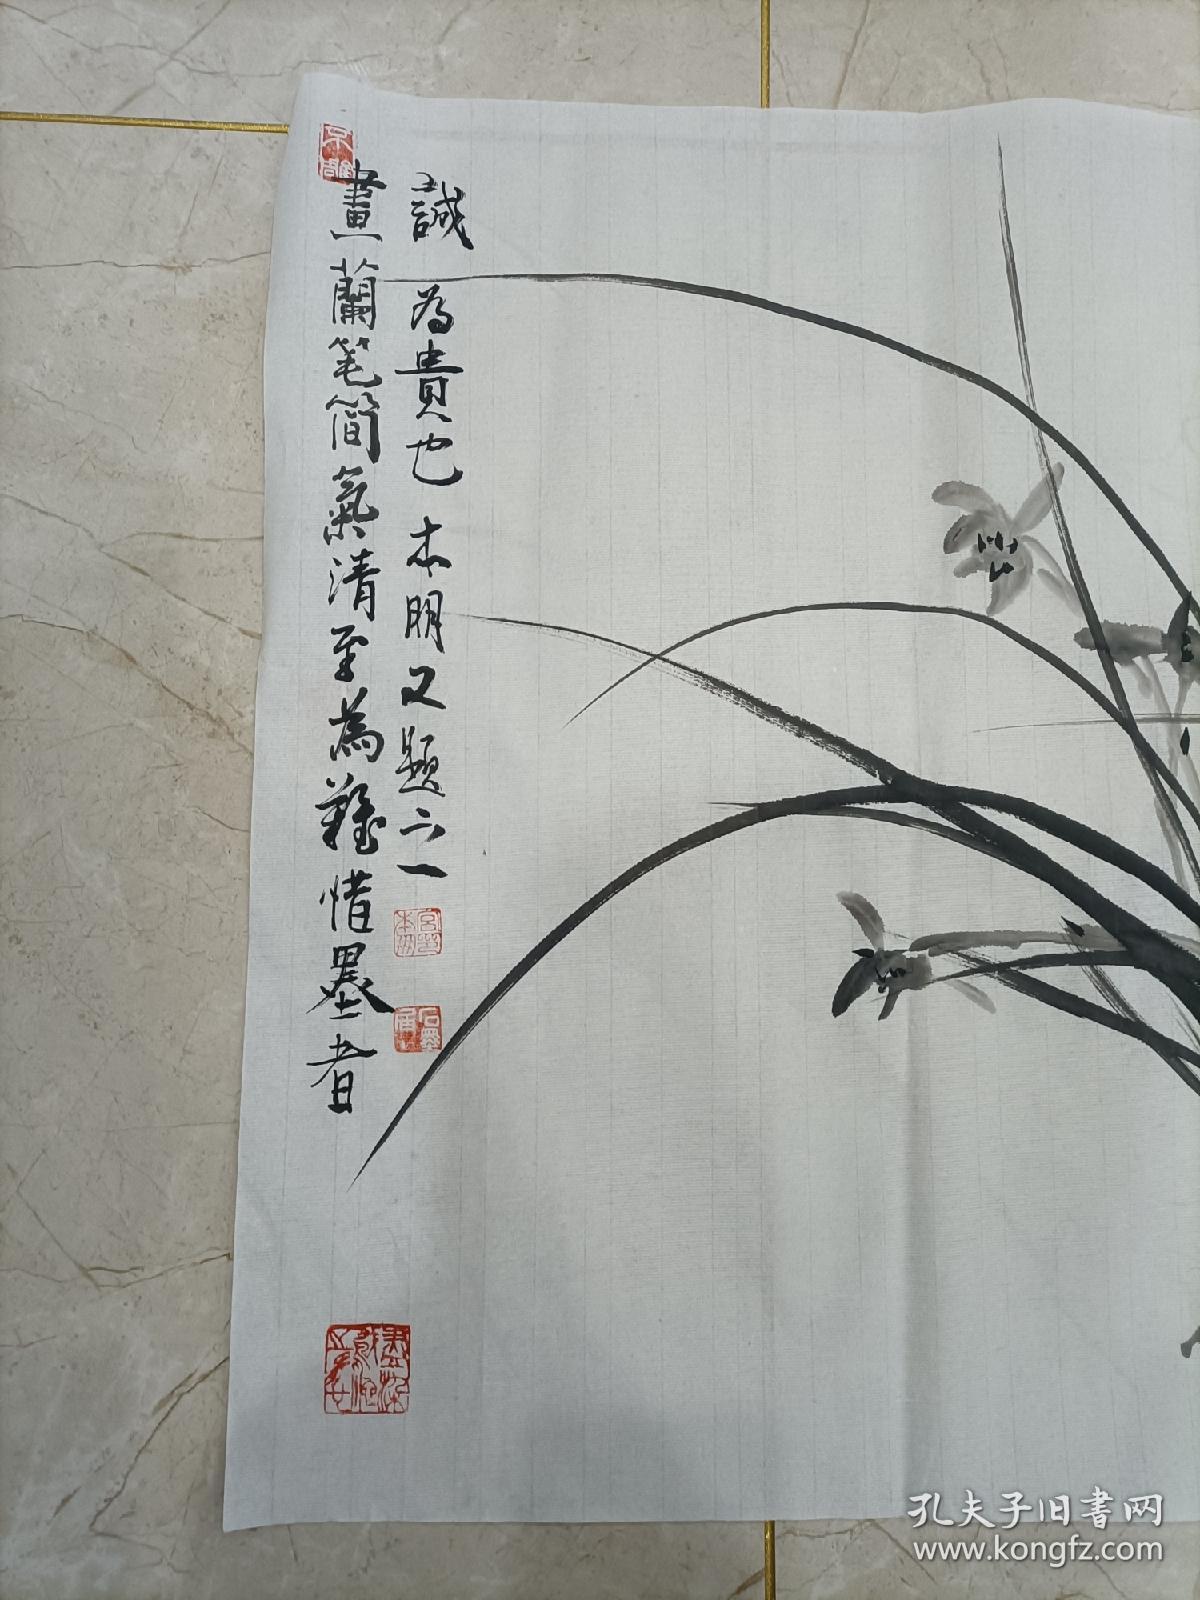 畫蘭笔简氣清至為難惜墨者
誠為貴也 本明又題
孔夫子旧书网
www.kongfz.com